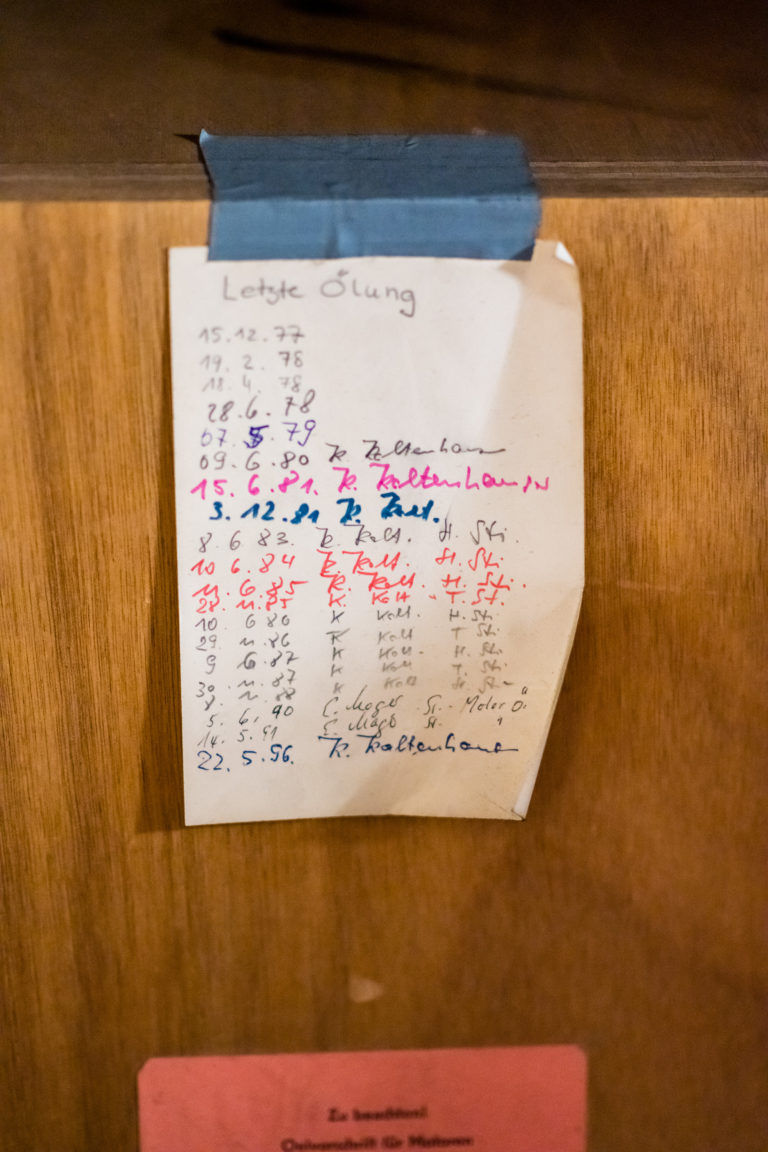 Letzte Ölung
15.12.77
19. 2. 78
18. 4. 78
28.6.78
07. 5. 79
09.6.80 K. Kaltenhauser
15.6.81. K. Kaltenhauser
3.12.81 K. Kalt.
8.6.83. K. Kalt. H. Sti.
10 6.84 K. Kalt. H. Sti.
11. 6.85 K. Kalt. H. Sti.
28. 11.85 K. Kalt - T. St.
10. 6 86 K Kalt. H. Sti
29. 11.86 K Kalt T Sti.
9 6.87 K Kalt. H. Sti
30. 11.87 K Kalt T. Sti.
8. 11.88 K Kalt H. Sti
5. 6. 90 St. Motor Ö.
14. 5.91 St. "
22. 5.96. K. Kaltenhauser
Zu beachten!
Oelvorschrift für Motoren